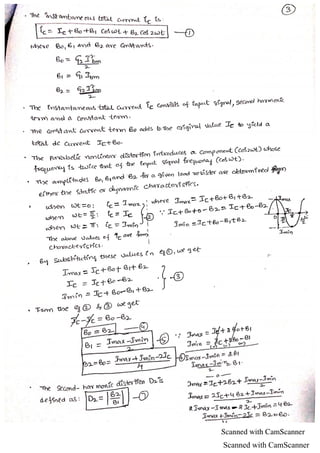 ③
• The instantaneous total current ic is
ic = Ic + B0 + B1 Cos wt + B2 Cos 2wt — ①
where B0, B1 and B2 are Constants.
B0 = G2 I²bm / 2
B1 = G1 Ibm
B2 = G2 I²bm / 2
• The instantaneous total current ic consists of input signal, second harmonic
term and a constant term.
• The constant current term B0 adds to the original value Ic to yield a
total dc current Ic + B0.
• The Parabolic nonlinear distortion introduces a component (Cos 2wt) whose
frequency is twice that of the input signal frequency (cos wt).
• The amplitudes B0, B1 and B2 for a given load resistor are obtained from
either the static or dynamic characteristics.
• when wt = 0; ic = Imax; where Imax = Ic + B0 + B1 + B2
when wt = π/2; ic = Ic — ② ∵ Ic + B0 - B2 = Ic + B0 - B2
when wt = π; ic = Imin Imin = Ic + B0 - B1 + B2
The above values of ic are from
characteristics.
Imax
Imin
• By Substituting these values in eq ①, we get
Imax = Ic + B0 + B1 + B2
Ic = Ic + B0 - B2 — ③
Imin = Ic + B0 - B1 + B2
• From the eq ② & ③ we get
Ic - Ic = B0 - B2
B0 = B2 — ④
B1 = Imax - Imin / 2 — ⑤
B2 = B0 = Imax + Imin - 2Ic / 4 — ⑥
∵ Imax = Ic + 2B0 + B1
Imin = Ic + 2B0 - B1
Imax - Imin = 2B1
Imax - Imin / 2 = B1
Imax = Ic + 2B2 + Imax - Imin / 2
Imax = 2Ic + 4B2 + Imax - Imin / 2
2Imax - Imax - 2Ic + Imin = 4B2
Imax + Imin - 2Ic / 4 = B2 = B0.
• The Second harmonic distortion D2 is
defined as: D2 = |B2 / B1| — ⑦
Scanned with CamScanner
Scanned with CamScanner